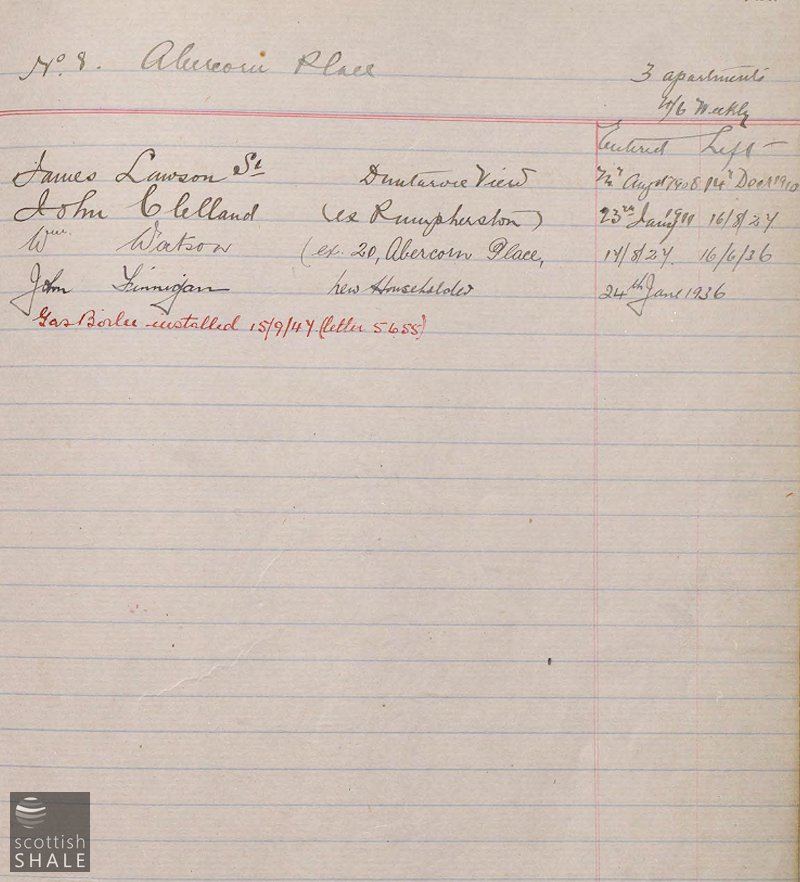 No. 8. Abercorn Place
3 apartments
Weekly
Entered Left
James Lawson Sr Duntarvie View Augt 1908 14th Decr 1910
John Clelland (ex Pumpherston) 23rd Jany 1911 16/8/27
Wm Watson (ex. 20, Abercorn Place, 17/8/27. 16/6/36
John Finnigan new Householder 24th June 1936
Gas Boiler installed 15/9/47 (letter 5655)
scottish
SHALE